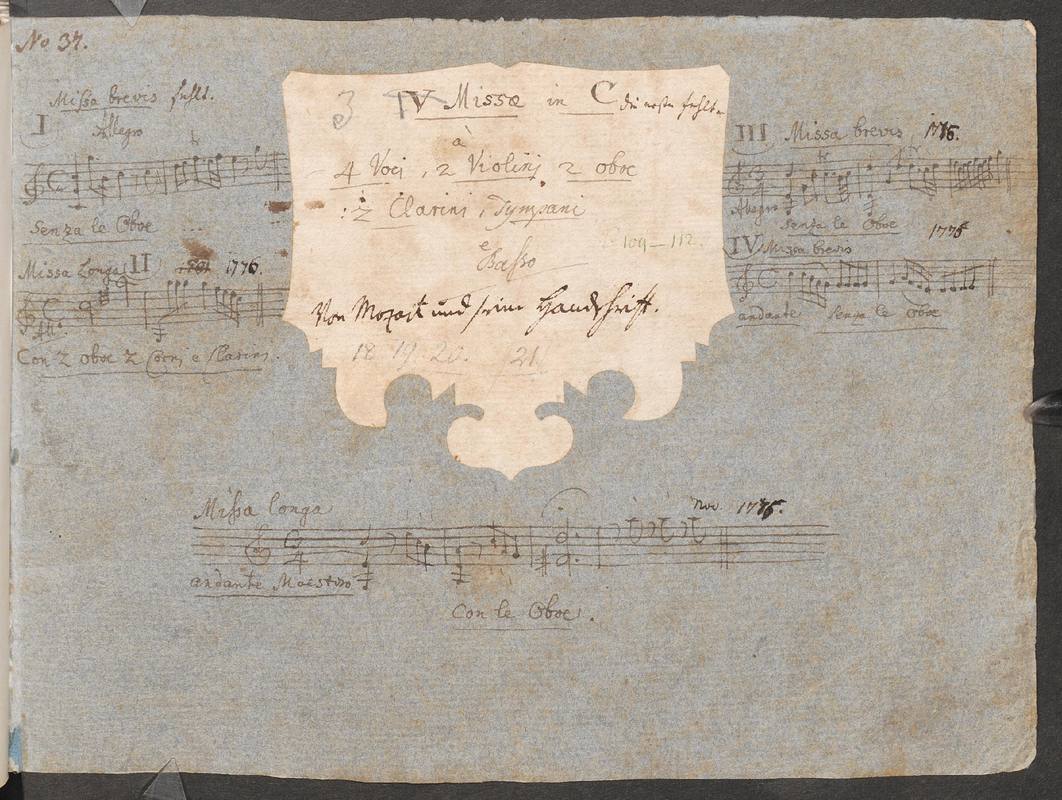 No 37.
Missa brevis fehlt.
I
Allegro
Senza le Oboe
Missa Longa II 1776.
All:
Con 2 oboe 2 Corni e Clarini.
3 IV Missæ in C die erste fehlt.
à
4 Voci, 2 Violini 2 oboe
:2 Clarini, Tympani
e
Basso
109–112.
Von Mozart und seine Handschrift.
18 19. 20. 21
III Missa brevis 1776.
Allegro
Senza le Oboe
1776
IV Missa brevis
andante Senza le oboe
Missa longa nov. 1776.
andante Maestoso
Con le Oboe.